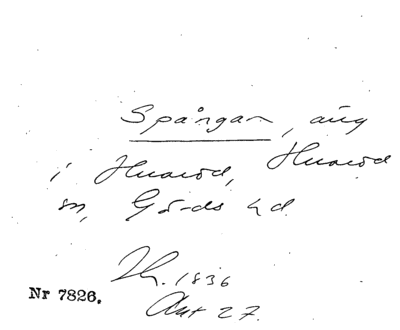 Spångan, äng
i Huaröd, Huaröd
sn, Gärds hd
1836
Akt 27.
Nr 7826.